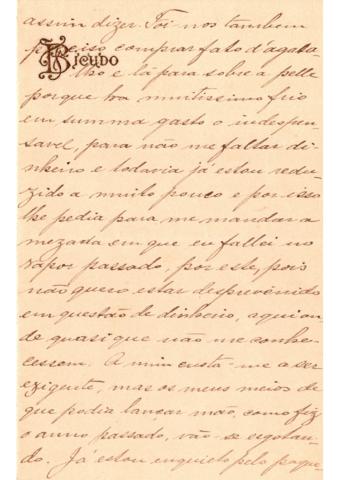 assim dizer. Foi-nos tambem
preciso comprar fato d'agasa-
Bicudo
lho e lã para sobre a pelle
porque ha muitissimo frio
em summa gasto o indespen-
savel, para não me faltar di-
nheiro e todavia já estou redu-
zido a muito pouco e por isso
lhe pedia para me mandar a
mezada em que eu fallei no
vapor passado, por este, pois
não quero estar desprevenido
em questão de dinheiro, aqui on-
de quasi que não me conhe-
cessem. A mim custa-me a ser
ezigente, mas os meus meios de
que podia lançar mão, como fiz
o anno passado, vão-se esgotan-
do. Já estou enquieto pelo paque-